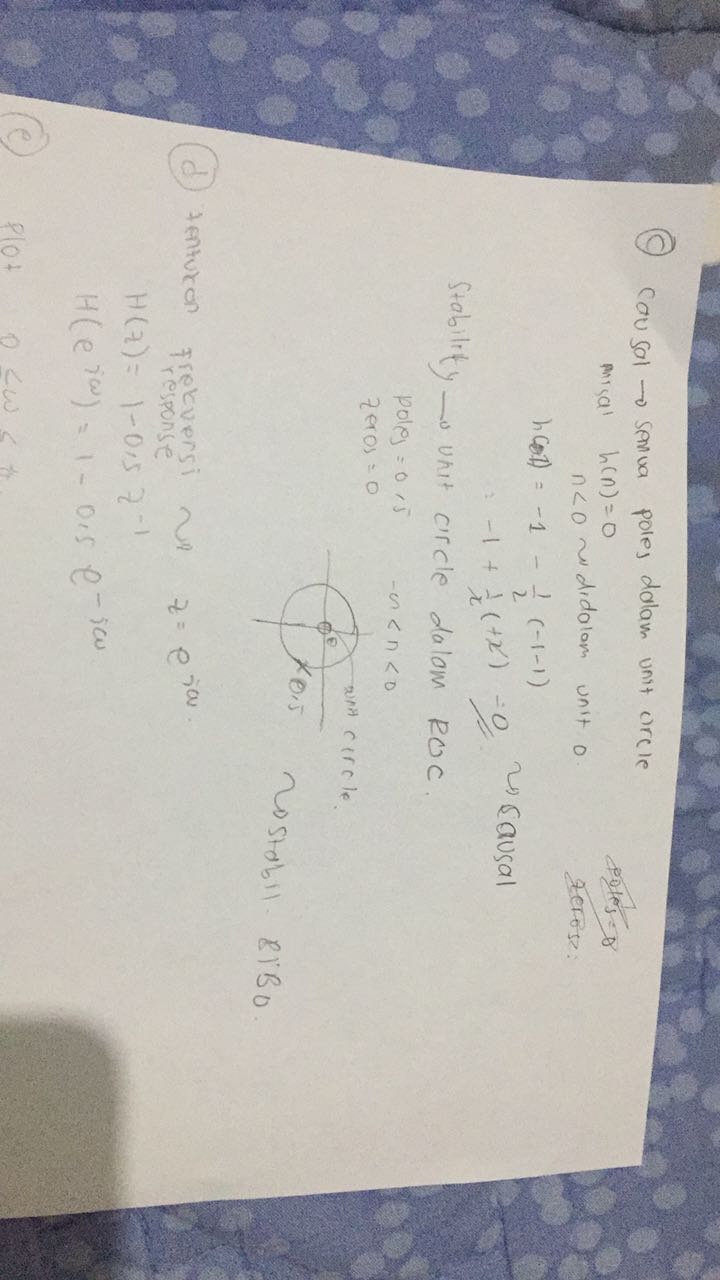 (c) causal → semua poles dalam unit circle
misal h(n)=0
n<0 ~ didalam unit 0.
= -1 - 1/2 (-1-1)
= -1 + 1/2 (+2) = 0 ~ causal
poles=0
zeros=
Stability → unit circle dalam ROC.
poles = 0,5
zeros = 0
-n < n < 0
unit circle.
0,5
~ stabil. BIBO.
(d) tentukan frekuensi response ~ z = e^jω.
H(z) = 1-0,5 z^-1
H(e^jω) = 1 - 0,5 e^-jω
(e) Plot 0 ≤ω ≤